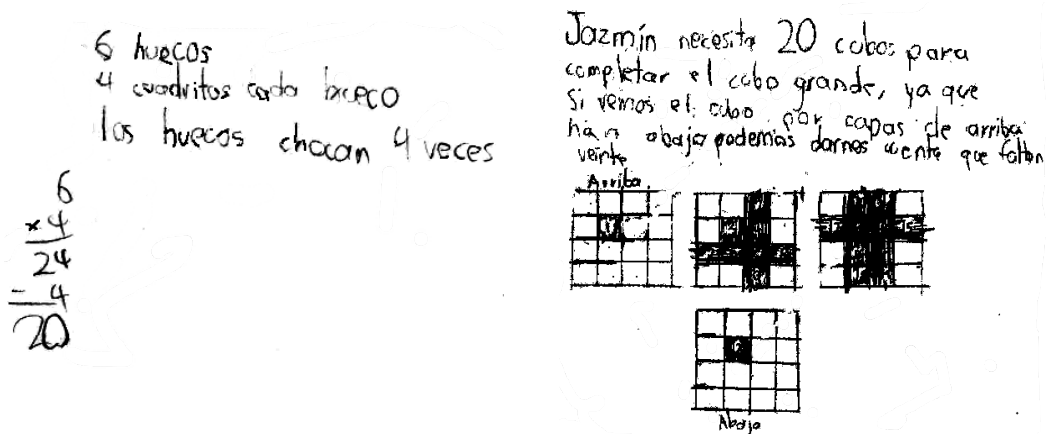 6 huecos
4 cuadritos cada hueco
los huecos chocan 4 veces
6
× 4
24
- 4
20
Jazmín necesita 20 cubos para
completar el cubo grande, ya que
si vemos el cubo por capas de arriba
hán abajo podemos darnos cuenta que faltan
veinte
Arriba
Abajo